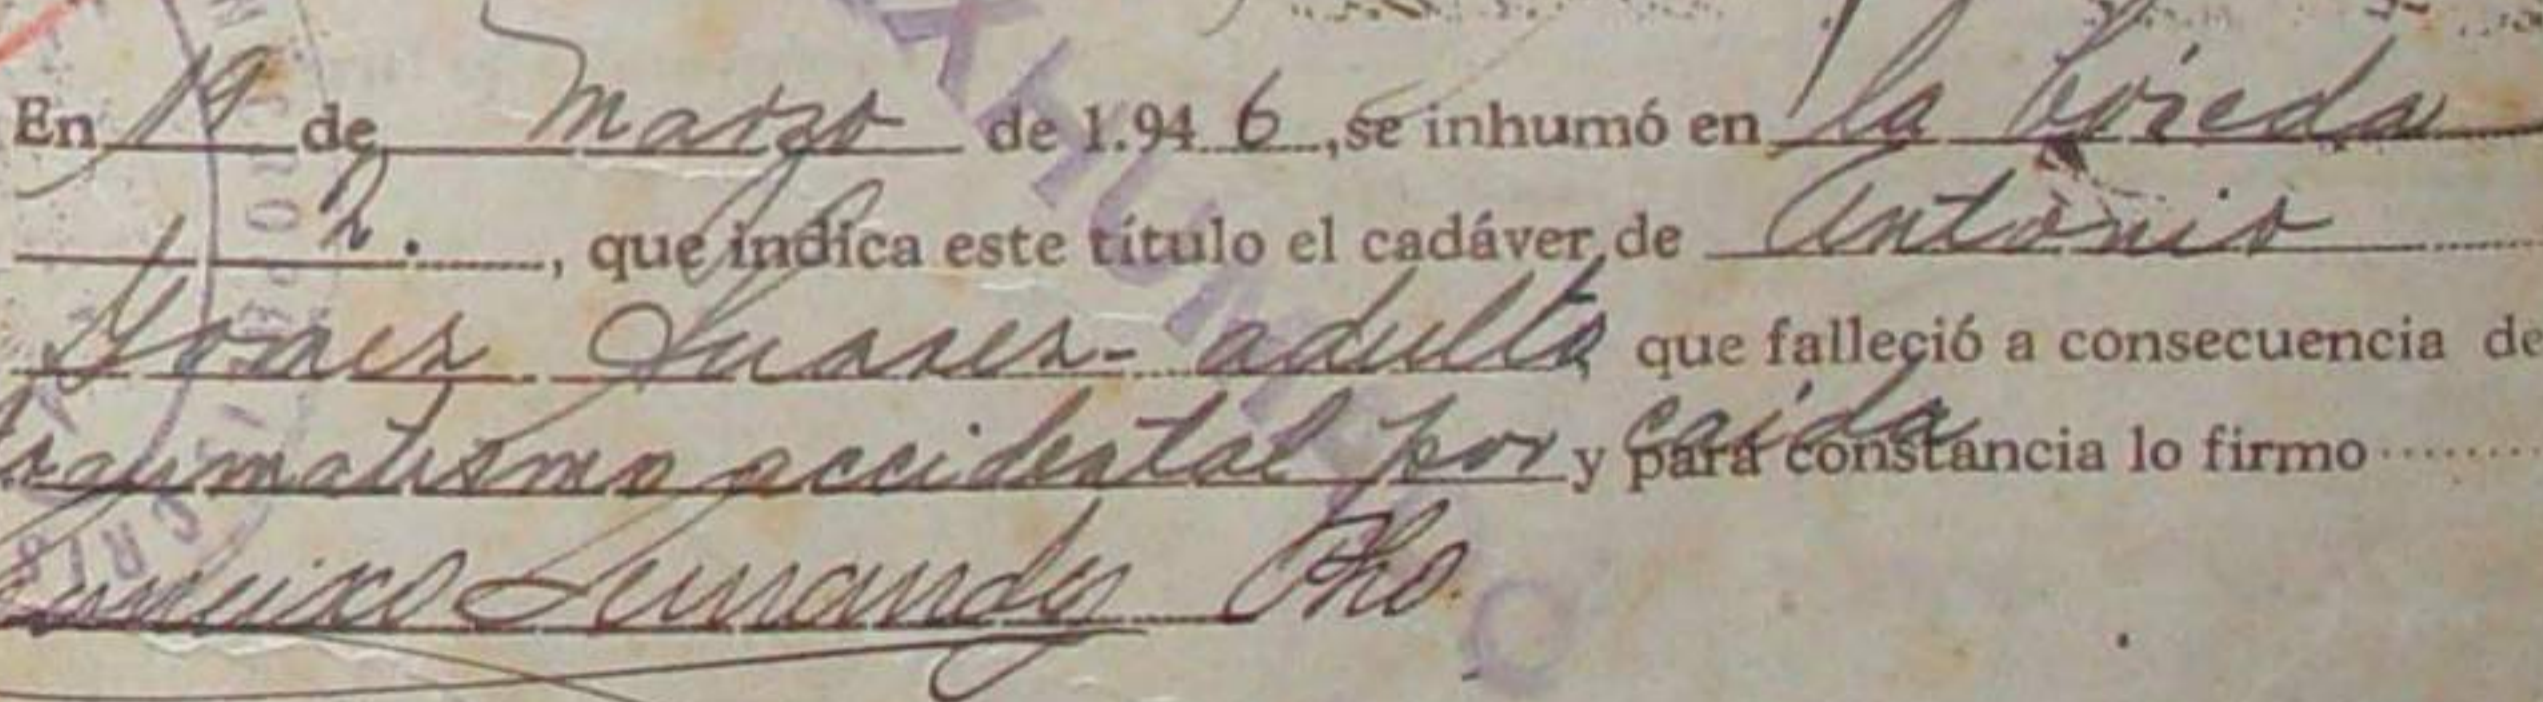 En 19 de Marzo de 1.946, se inhumó en la bóveda
2. , que indica este título el cadáver de Antonio
Gomez Suarez - adulto, que falleció a consecuencia de
traumatismo accidental por caida y para constancia lo firmo
Francisco Fernandez Pbo.